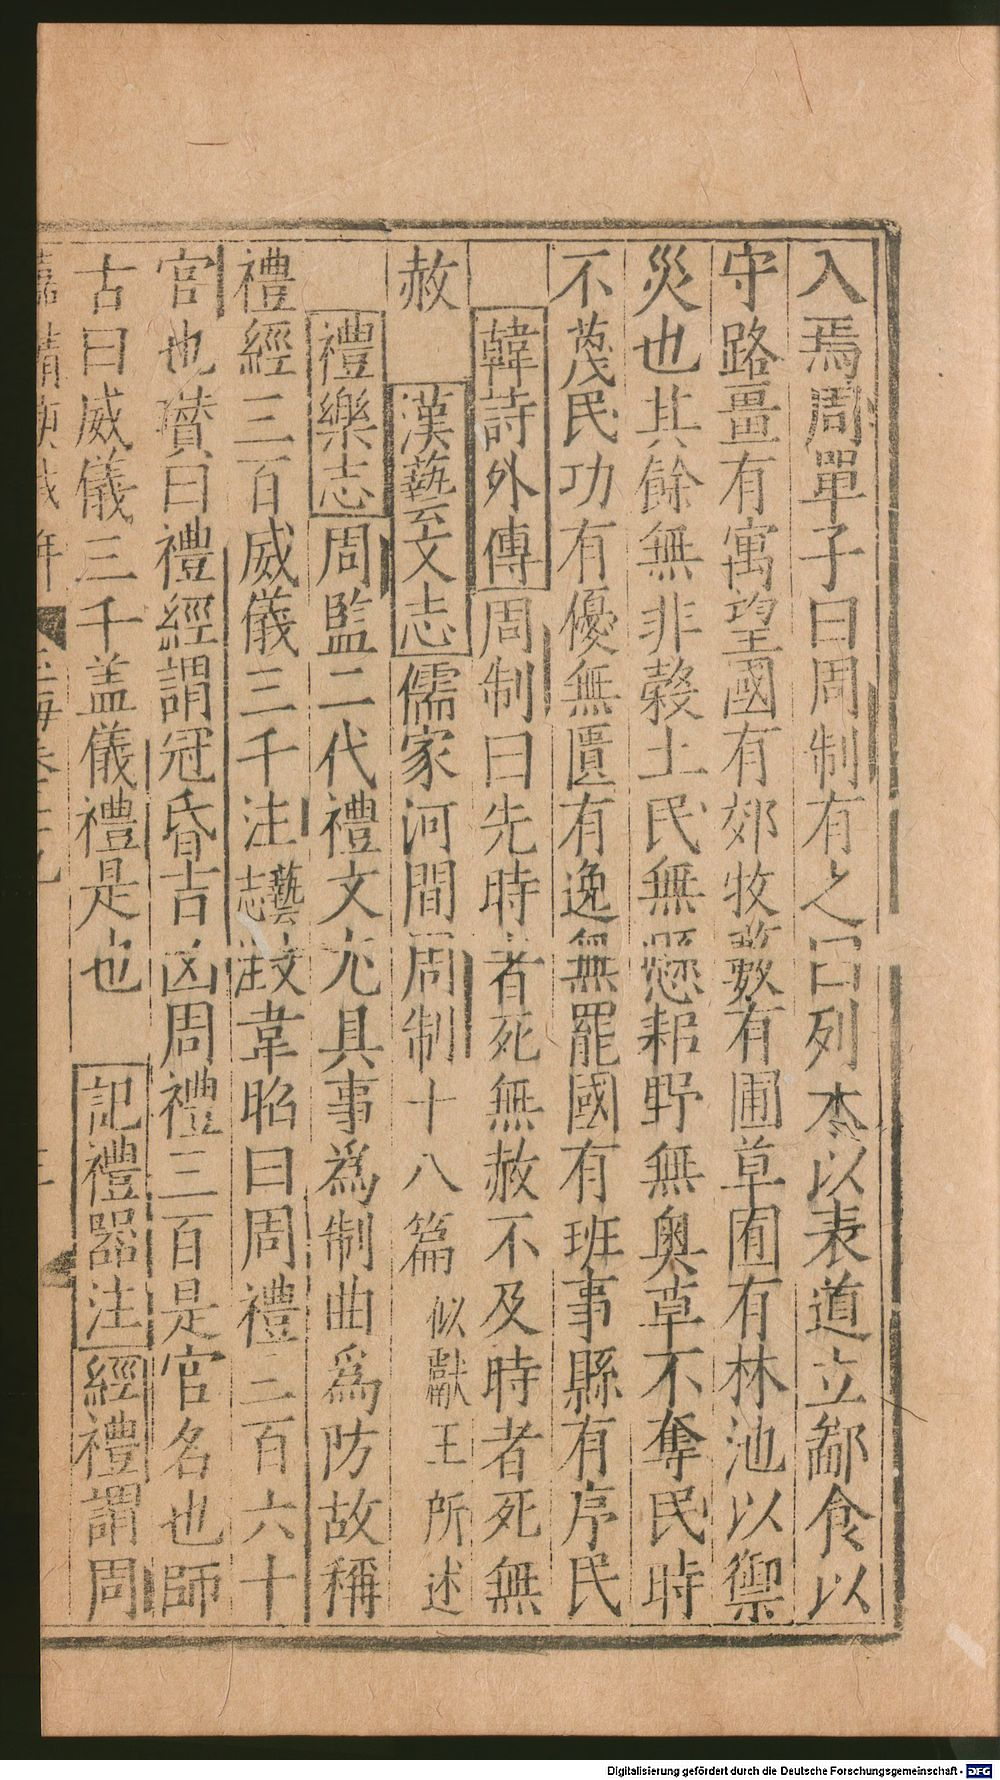 入焉周單子曰周制有之曰列木以表道立鄙食以
守路畺有寓望國有郊牧藪有圃草囿有林池以禦
災也其餘無非穀土民無懸耜野無奥草不奪民時
不蔑民功有優無匱有逸無罷國有班事縣有序民
韓詩外傳周制曰先時者死無赦不及時者死無
赦 漢藝文志儒家河間周制十八篇似獻王所述
禮樂志周監二代禮文尤具事爲制曲爲防故稱
禮經三百威儀三千注藝文志注韋昭曰周禮三百六十
官也瓚曰禮經謂冠昏吉凶周禮三百是官名也師
古曰威儀三千盖儀禮是也 記禮器注經禮謂周
嘉靖 年 玉海卷
Digitalisierung gefördert durch die Deutsche Forschungsgemeinschaft - DFG